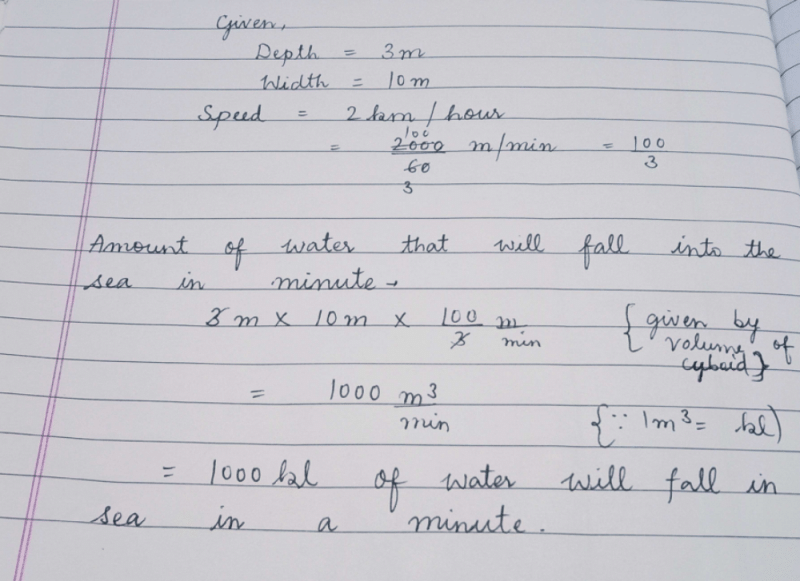 Given,
Depth = 3m
Width = 10m
Speed = 2 km / hour
= 2000/60 m/min = 100/3
100
3
Amount of water that will fall into the
sea in minute →
3 m × 10m × 100/3 m/min {given by
volume of
cyboid}
= 1000 m³/min
{∵ 1m³ = kl)
= 1000 kl of water will fall in
sea in a minute.